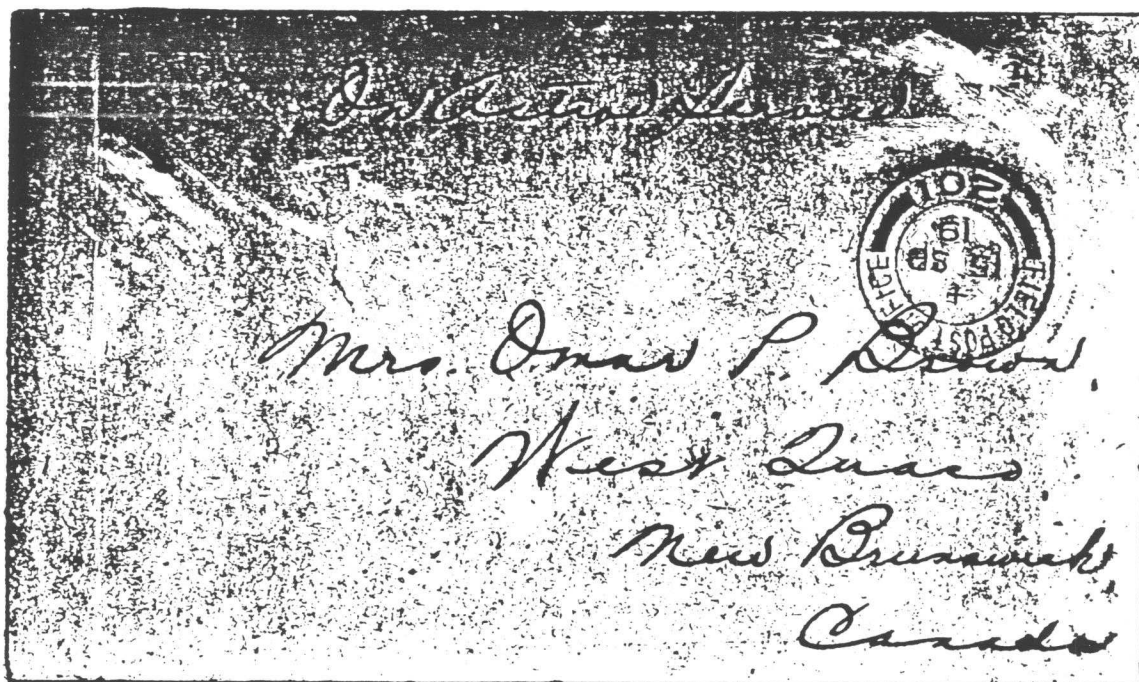 On Active Service
FIELD POST OFFICE
Mrs. Omar P. Brown,
West Quaco
New Brunswick,
Canada